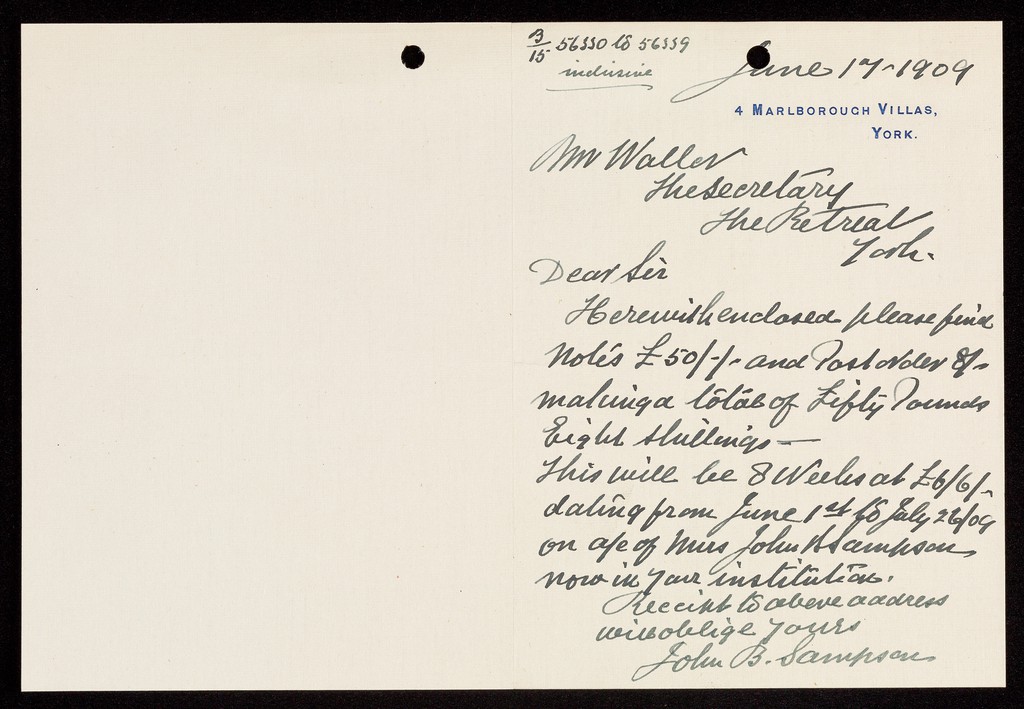 B/15 56330 to 56339
inclusive
June 17-1909
4 MARLBOROUGH VILLAS,
YORK.
Mr Waller
The Secretary
The Retreat
York.
Dear Sir
Herewith enclosed please find
notes £50/-/- and Post order 8/-
making a total of Fifty Pounds
Eight shillings —
This will be 8 Weeks at £6/6/-
dating from June 1st to July 26/09
on a/c of Mrs John B Sampson
now in your institution.
Receipt to above address
will oblige yours
John B. Sampson